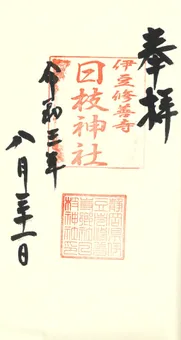 奉拝
伊豆修善寺
日枝神社
令和三年
八月三十一日